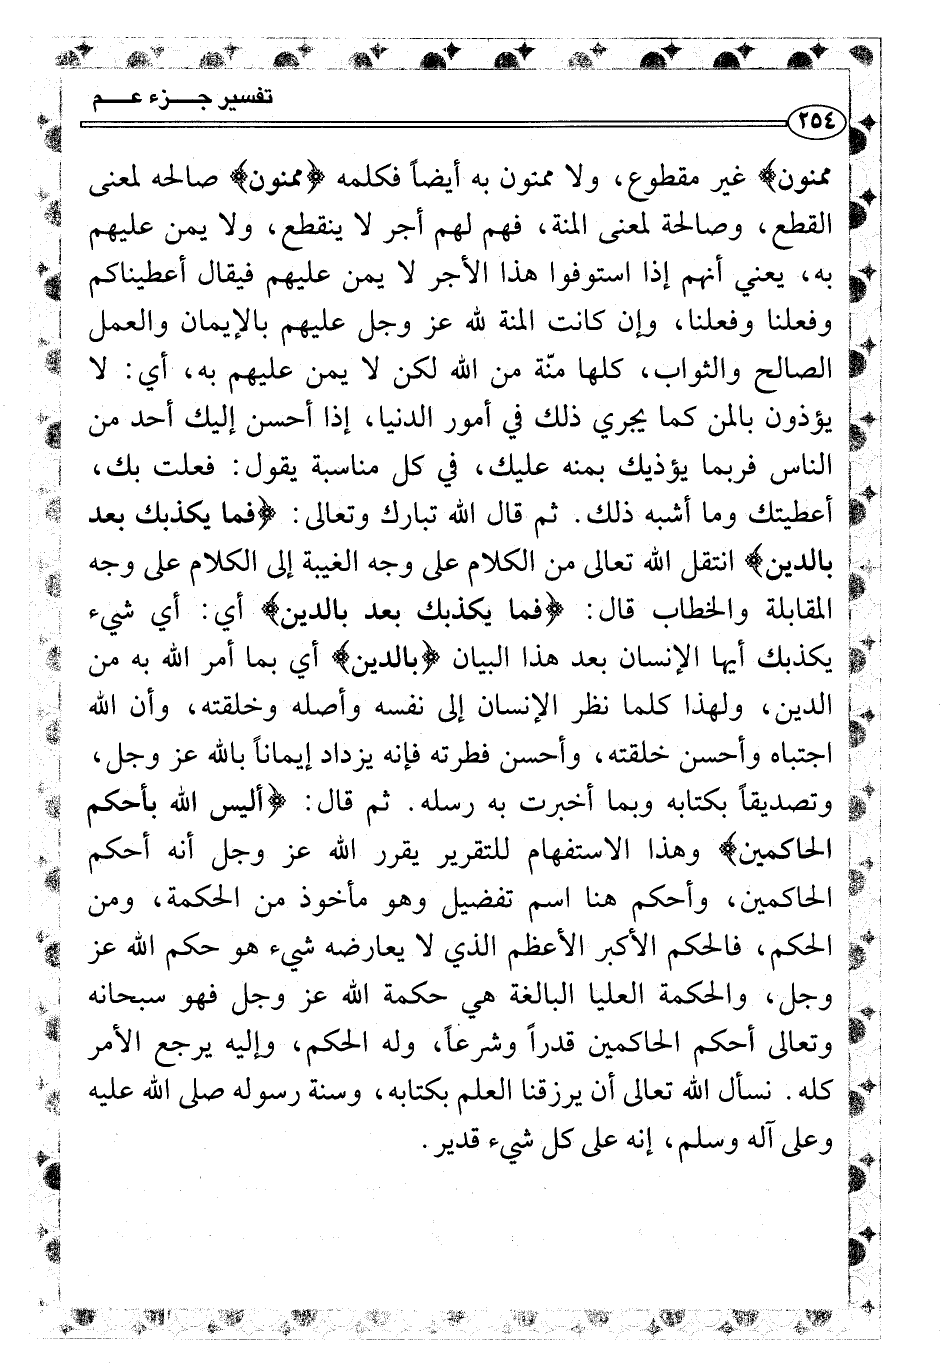 تفسير جـــزء عـــم
٢٥٤
ممنون﴾ غير مقطوع، ولا ممنون به أيضاً فكلمه ﴿ممنون﴾ صالحه لمعنى
القطع، وصالحة لمعنى المنة، فهم لهم أجر لا ينقطع، ولا يمن عليهم
به، يعني أنهم إذا استوفوا هذا الأجر لا يمن عليهم فيقال أعطيناكم
وفعلنا وفعلنا، وإن كانت المنة لله عز وجل عليهم بالإيمان والعمل
الصالح والثواب، كلها منّة من الله لكن لا يمن عليهم به، أي: لا
يؤذون بالمن كما يجري ذلك في أمور الدنيا، إذا أحسن إليك أحد من
الناس فربما يؤذيك بمنه عليك، في كل مناسبة يقول: فعلت بك،
أعطيتك وما أشبه ذلك. ثم قال الله تبارك وتعالى: ﴿فما يكذبك بعد
بالدين﴾ انتقل الله تعالى من الكلام على وجه الغيبة إلى الكلام على وجه
المقابلة والخطاب قال: ﴿فما يكذبك بعد بالدين﴾ أي: أي شيء
يكذبك أيها الإنسان بعد هذا البيان ﴿بالدين﴾ أي بما أمر الله به من
الدين، ولهذا كلما نظر الإنسان إلى نفسه وأصله وخلقته، وأن الله
اجتباه وأحسن خلقته، وأحسن فطرته فإنه يزداد إيماناً بالله عز وجل،
وتصديقاً بكتابه وبما أخبرت به رسله. ثم قال: ﴿أليس الله بأحكم
الحاكمين﴾ وهذا الاستفهام للتقرير يقرر الله عز وجل أنه أحكم
الحاكمين، وأحكم هنا اسم تفضيل وهو مأخوذ من الحكمة، ومن
الحكم، فالحكم الأكبر الأعظم الذي لا يعارضه شيء هو حكم الله عز
وجل، والحكمة العليا البالغة هي حكمة الله عز وجل فهو سبحانه
وتعالى أحكم الحاكمين قدراً وشرعاً، وله الحكم، وإليه يرجع الأمر
كله. نسأل الله تعالى أن يرزقنا العلم بكتابه، وسنة رسوله صلى الله عليه
وعلى آله وسلم، إنه على كل شيء قدير.